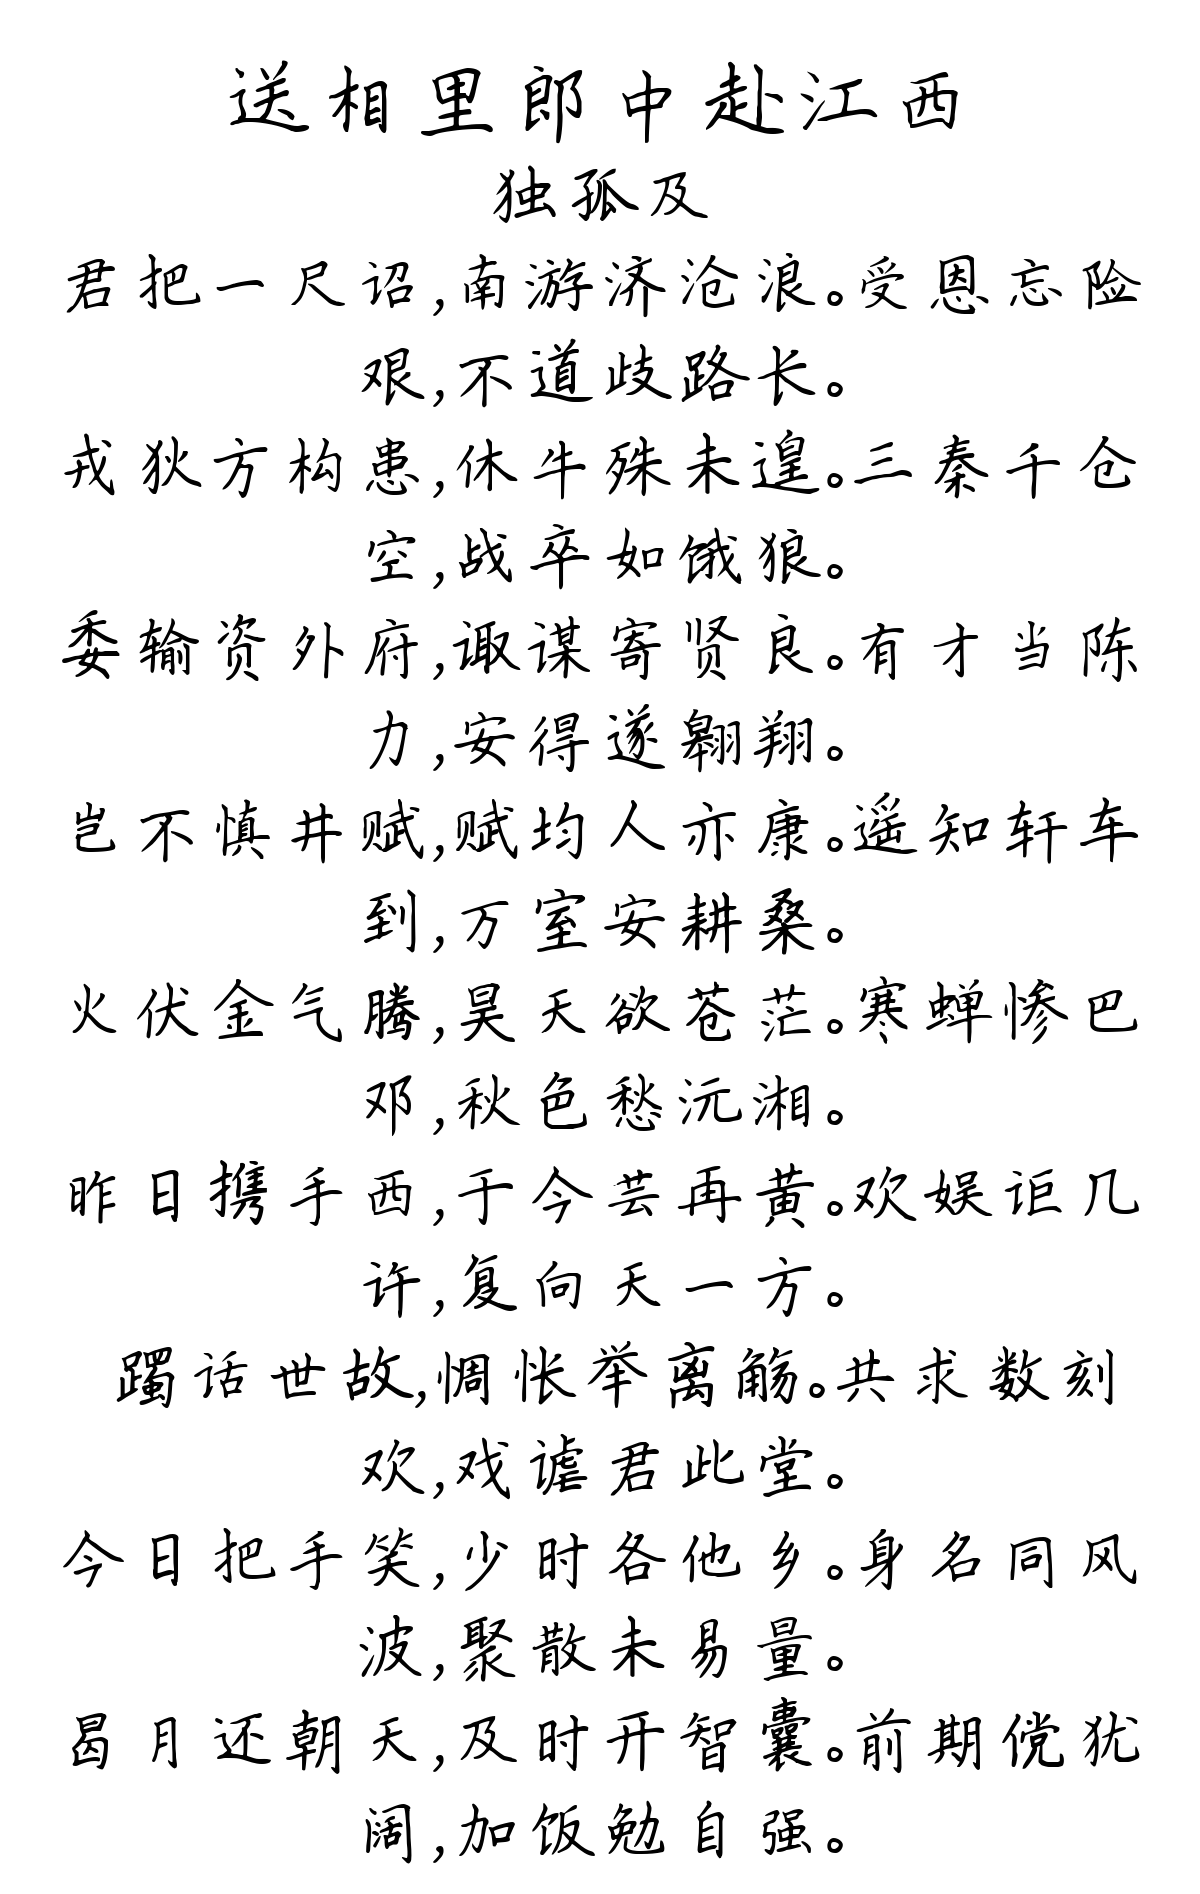 送相里郎中赴江西
独孤及
君把一尺诏,南游济沧浪。受恩忘险
艰,不道歧路长。
戎狄方构患,休牛殊未遑。三秦千仓
空,战卒如饿狼。
委输资外府,诹谋寄贤良。有才当陈
力,安得遂翱翔。
岂不慎井赋,赋均人亦康。遥知轩车
到,万室安耕桑。
火伏金气腾,昊天欲苍茫。寒蝉惨巴
邓,秋色愁沅湘。
昨日携手西,于今芸再黄。欢娱讵几
许,复向天一方。
躅话世故,惆怅举离觞。共求数刻
欢,戏谑君此堂。
今日把手笑,少时各他乡。身名同风
波,聚散未易量。
曷月还朝天,及时开智囊。前期傥犹
阔,加饭勉自强。